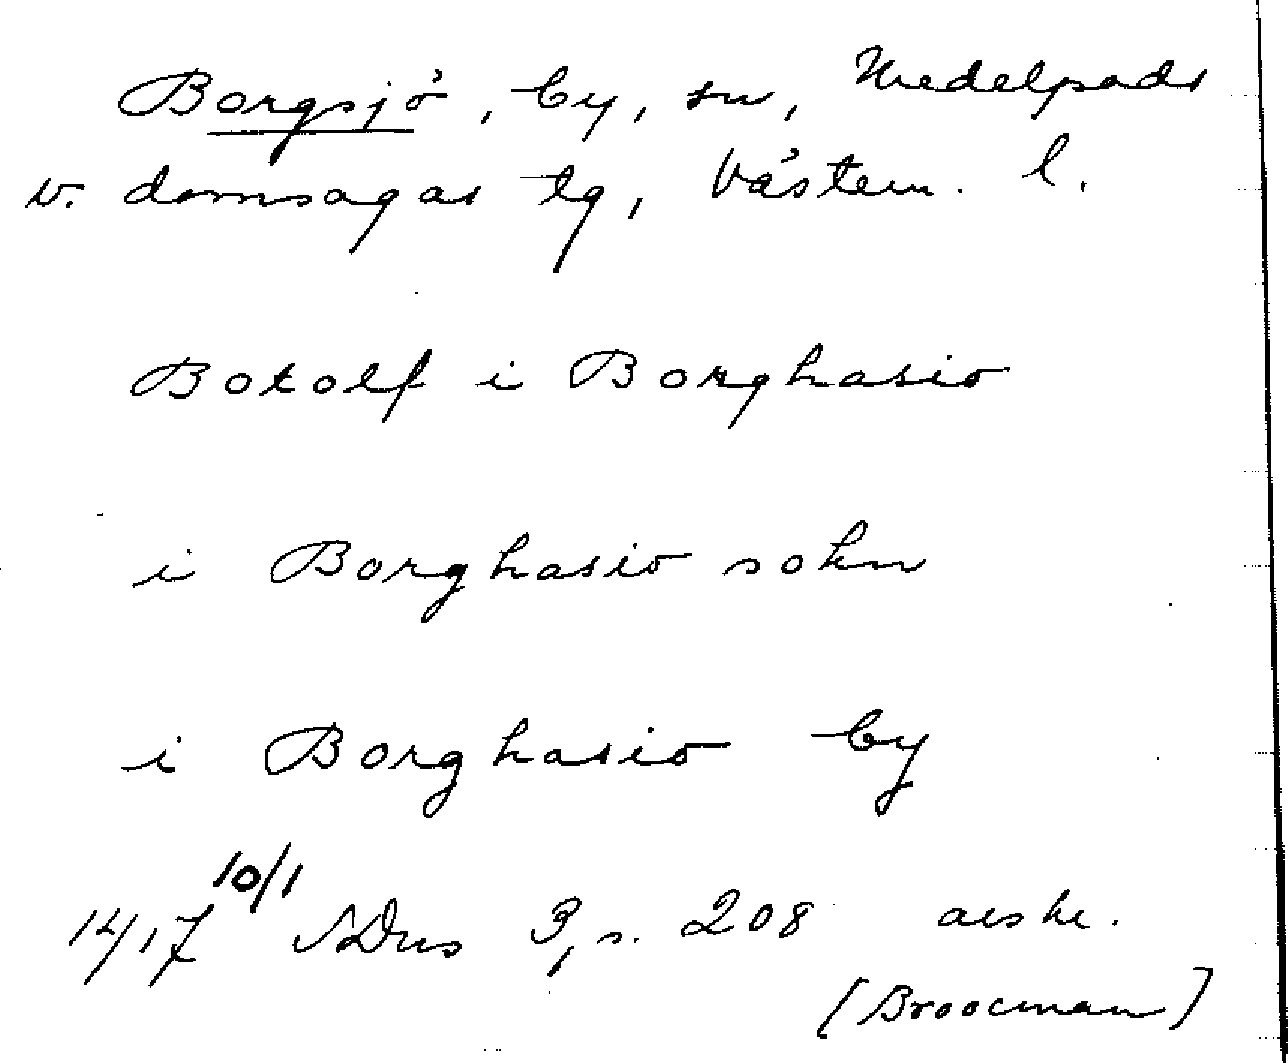 Borgsjö, by, sn, Medelpads
v. domsagas tg, Västern. l.
Botolf i Borghasio
i Borghasio sokn
i Borghasio by
1417 10/1 SDns 3, s. 208 avskr.
[Broocman]